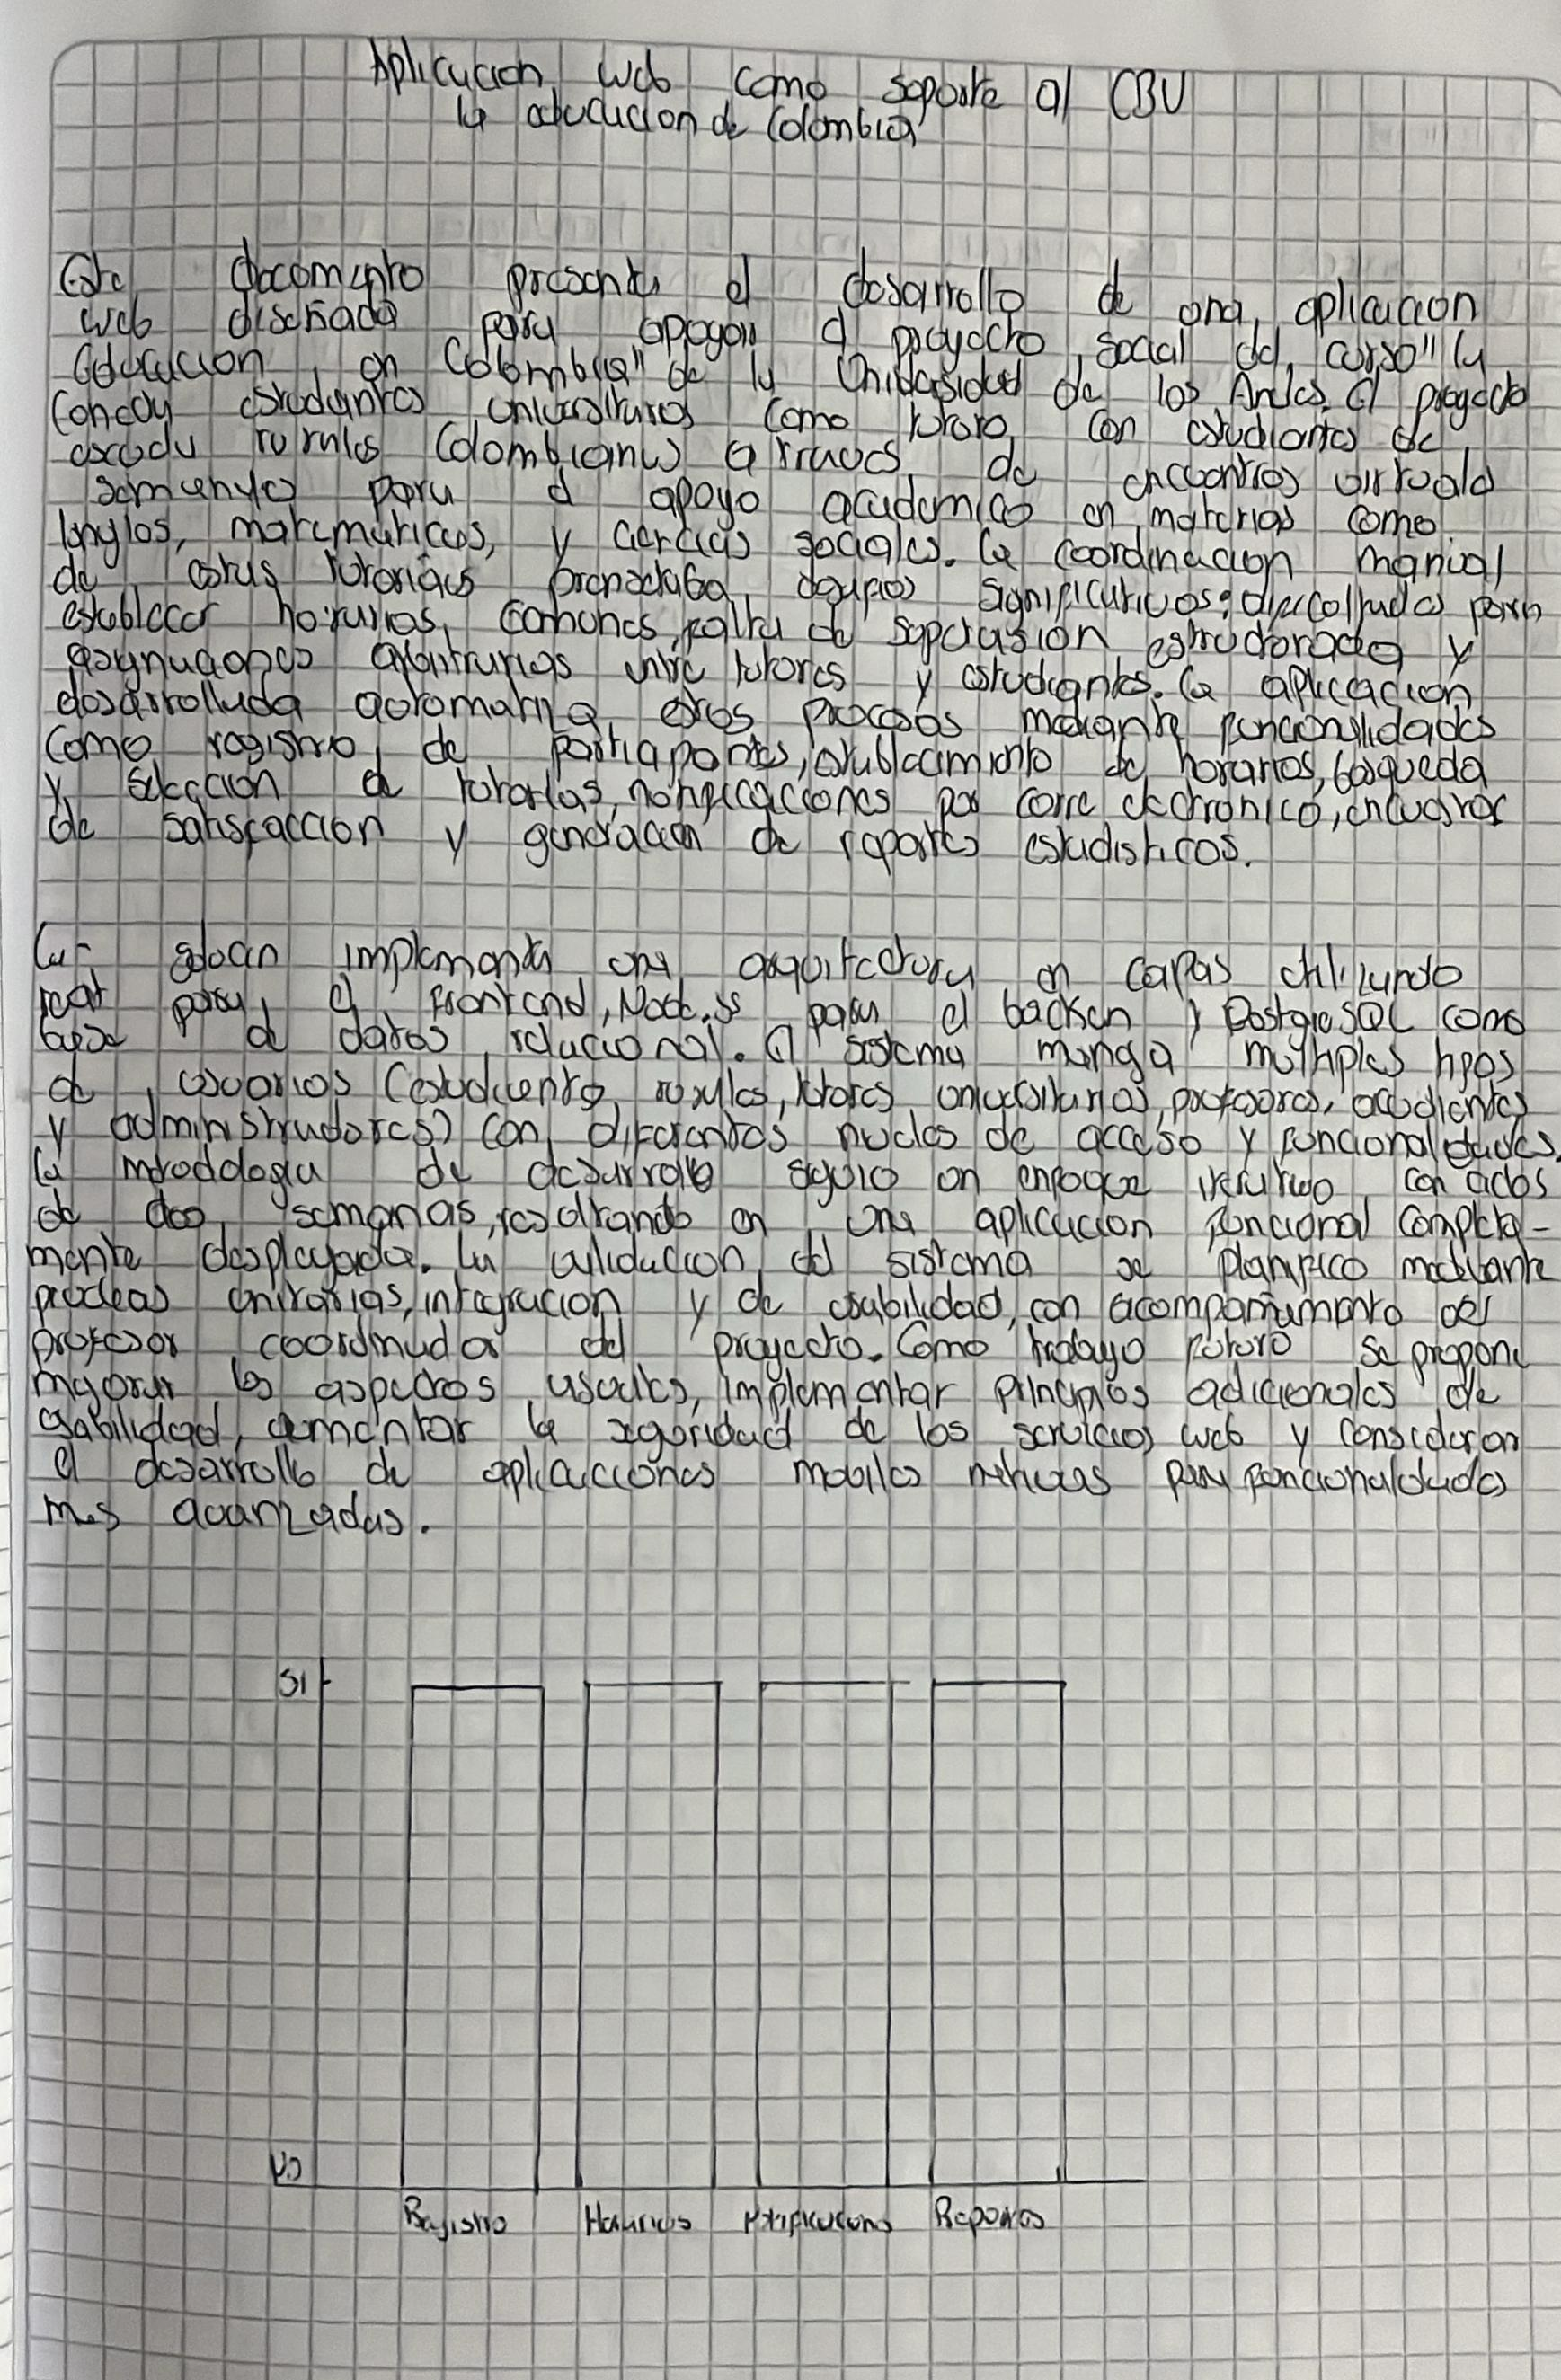 Aplicacion web como soporte al CBU
la educacion de Colombia
Este documento presenta el desarrollo de una aplicacion
web diseñada para apoyar el proyecto social del curso "la
Educacion en Colombia" de la Universidad de los Andes. El proyecto
conecta estudiantes universitarios como tutores con estudiantes de
escuela rurales Colombianas a traves de encuentros virtuales
semanales para el apoyo academico en materias como
Ingles, matematicas, y ciencias sociales. La coordinacion manual
de estas tutorias presentaba desafios significativos: dificultades para
establecer horarios comunes, falta de supervision estructurada y
asignaciones arbitrarias entre tutores y estudiantes. La aplicacion
desarrollada automatiza estos procesos mediante funcionalidades
como registro de participantes, establecimiento de horarios, busqueda
y seleccion de tutorias, notificaciones por corre electronico, encuestas
de satisfaccion y generacion de reportes estadisticos.
La solucin implementa una arquitectura en capas utilizando
reat para el frontend, Node.js para el backen y PostgreSQL como
base de datos relacional. El sistema maneja multiples tipos
de usuarios (estudiantes rurales, tutores universitarios, profesores, acudientes
y administradores) con diferentes niveles de acceso y funcionalidades.
La metodologia de desarrollo siguio un enfoque iterativo con ciclos
de dos semanas, resultando en una aplicacion funcional completa-
mente desplegada. La validacion del sistema se planifico mediante
pruebas unitarias, integracion y de usabilidad, con acompañamiento del
profesor coordinador del proyecto. Como trabajo futuro se propone
mejorar los aspectos visuales, implementar principios adicionales de
usabilidad, aumentar la seguridad de los servicios web y considerar
el desarrollo de aplicaciones moviles nativas para funcionalidades
mas avanzadas.
SI
NO
Registro Horarios Notificaciones Reportes